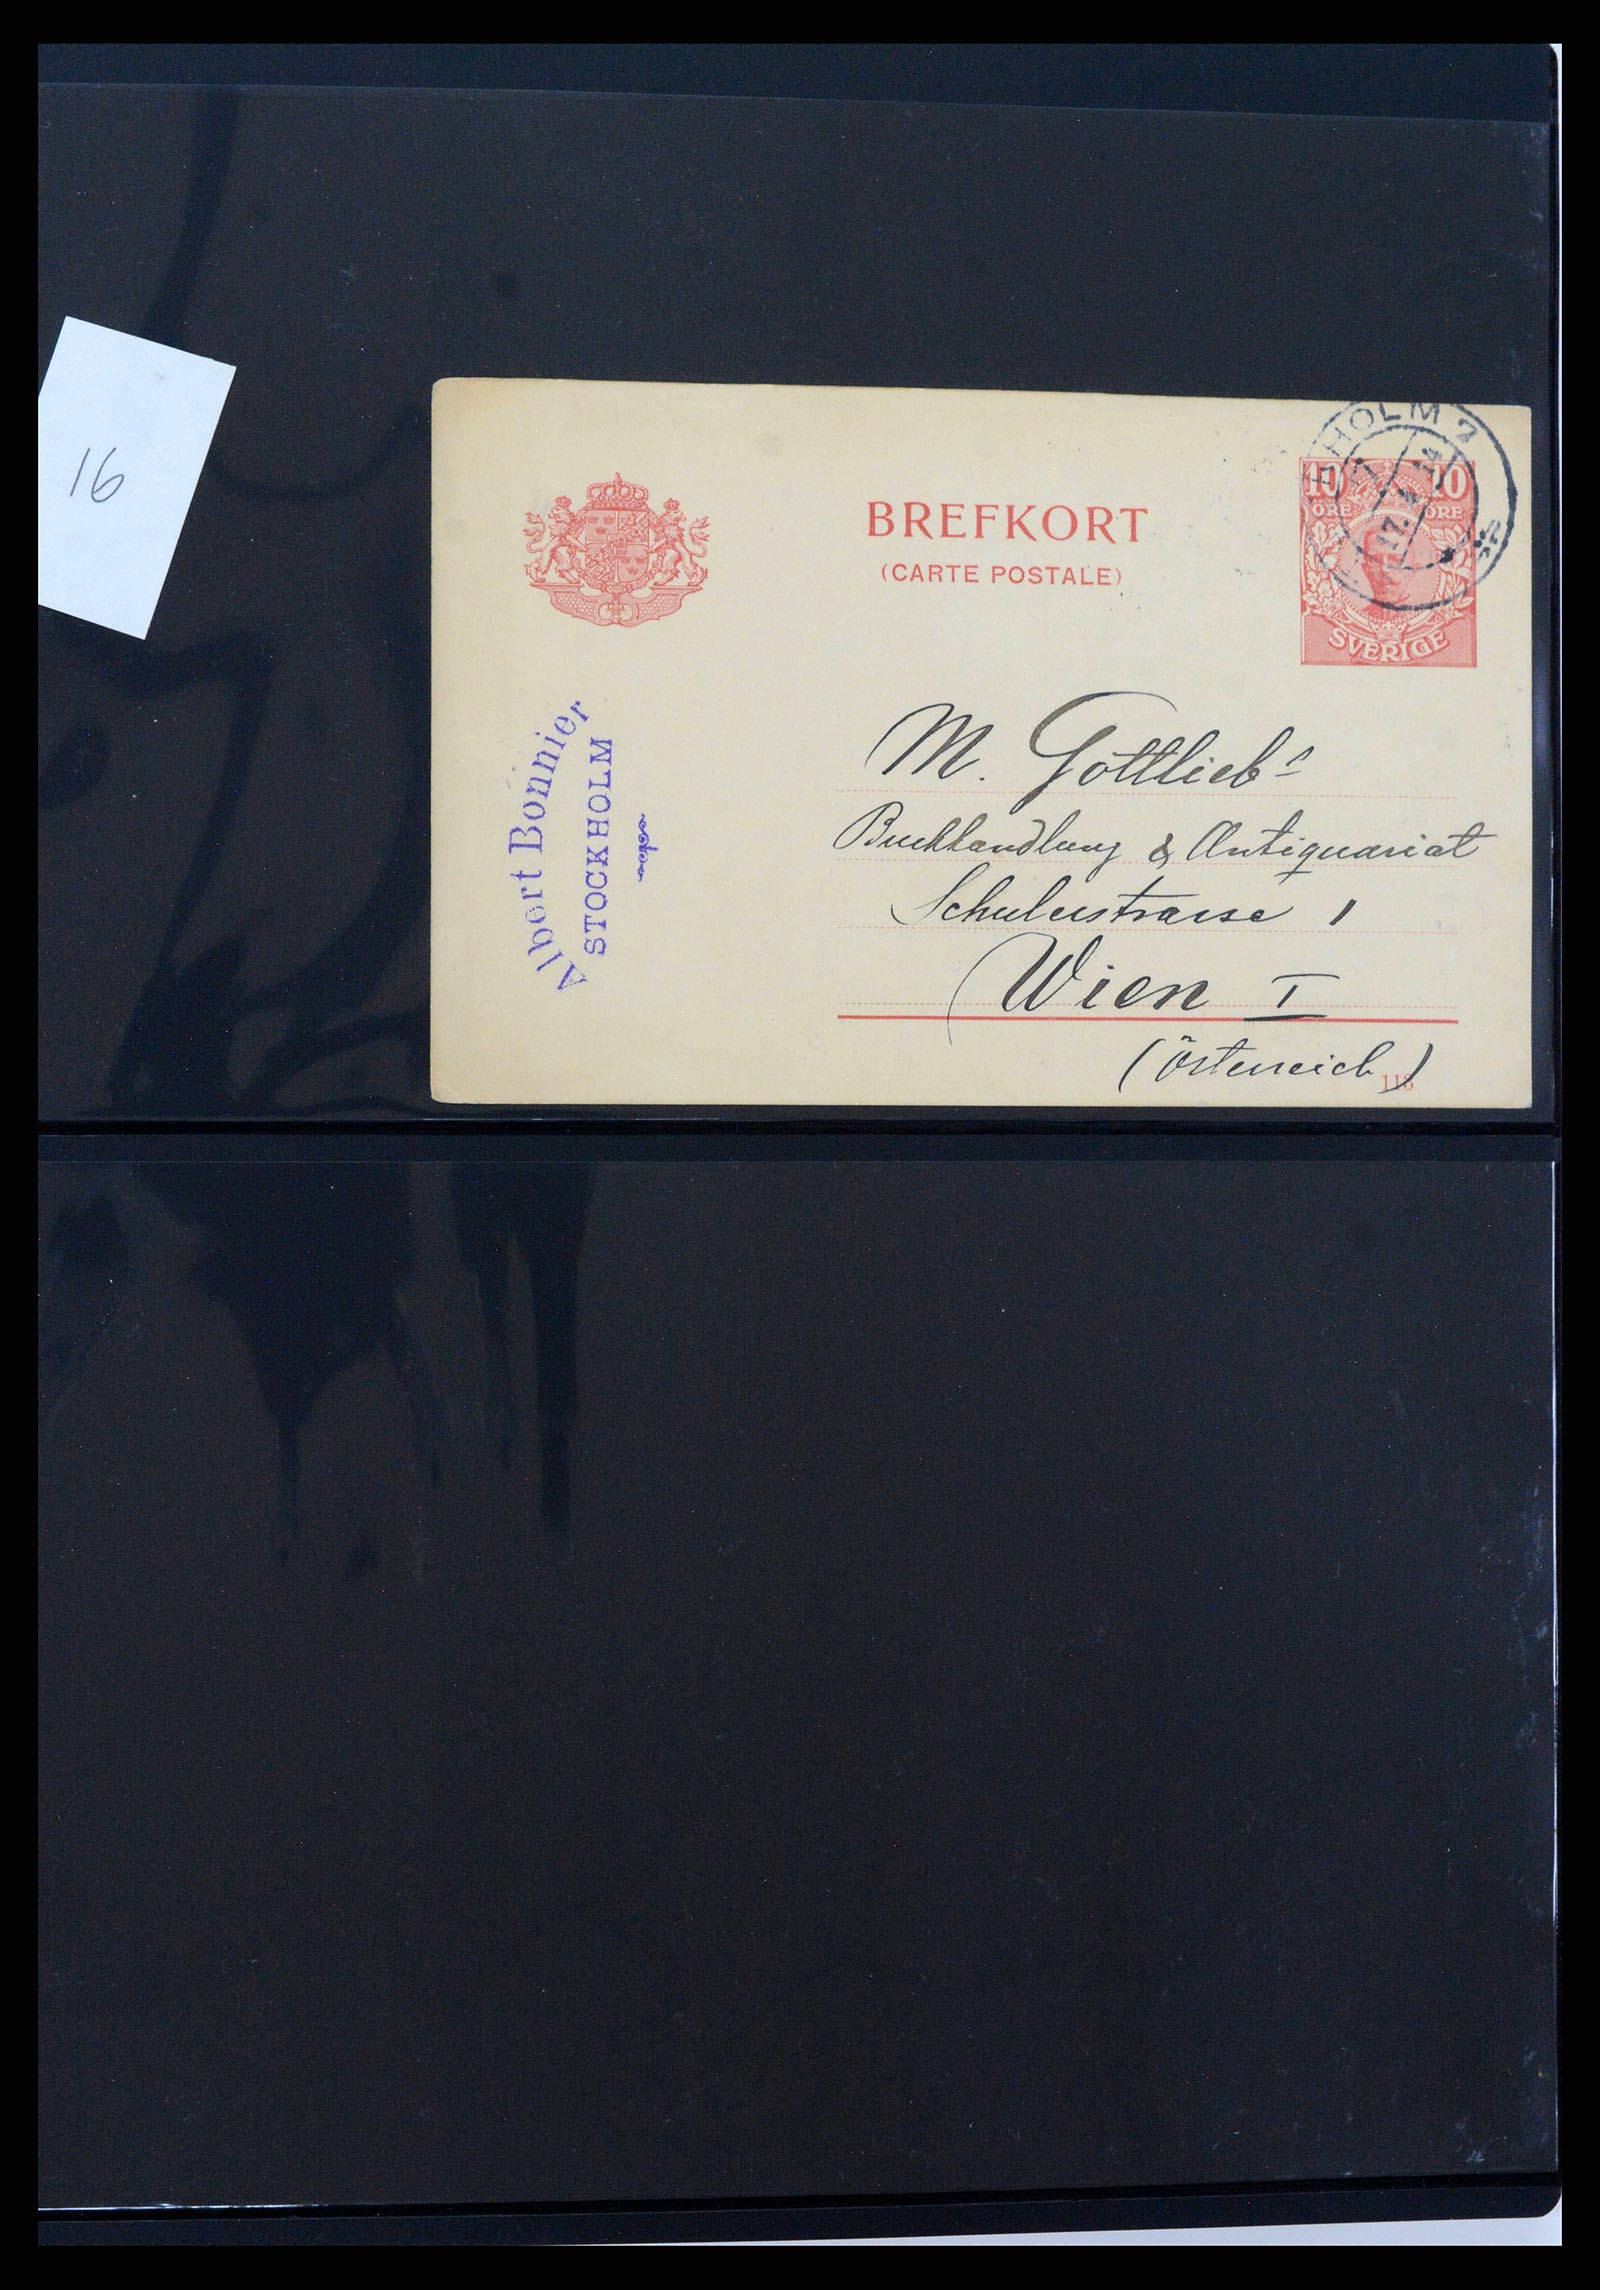 16
BREFKORT
(CARTE POSTALE)
HOLM 2
17. 14
10 10
ÖRE ÖRE
SVERIGE
Albert Bonnier
STOCKHOLM
M. Gottliebs
Buchhandlung & Antiquariat
Schulerstrasse 1
Wien I
(Österreich)
113